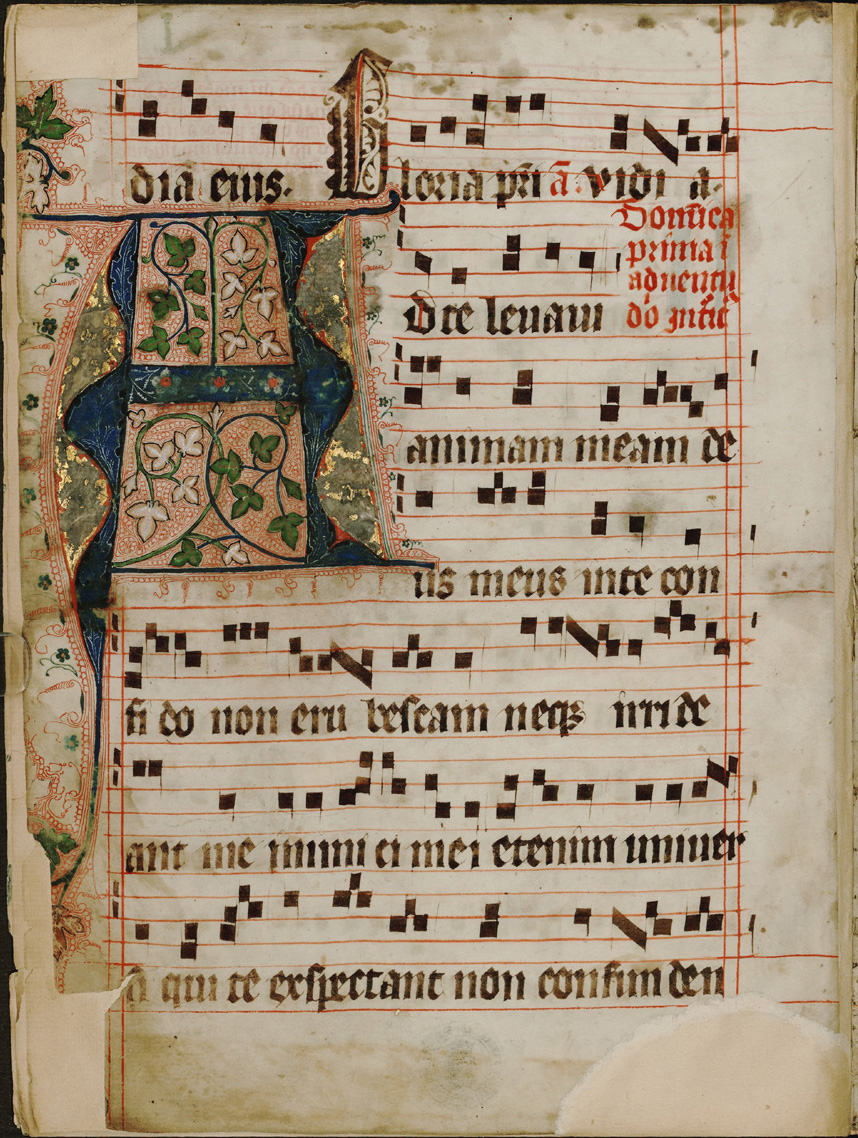 dia eius. Gloria pri ā. vidi a.
Domīca
prima ī
aduentu
do
A D te leuaui
animam meam de
us meus inte con
fi do non eru bescam neqꝫ irri de
ant me inimi ci mei etenim uniuer
si qui te exspectant non confun den